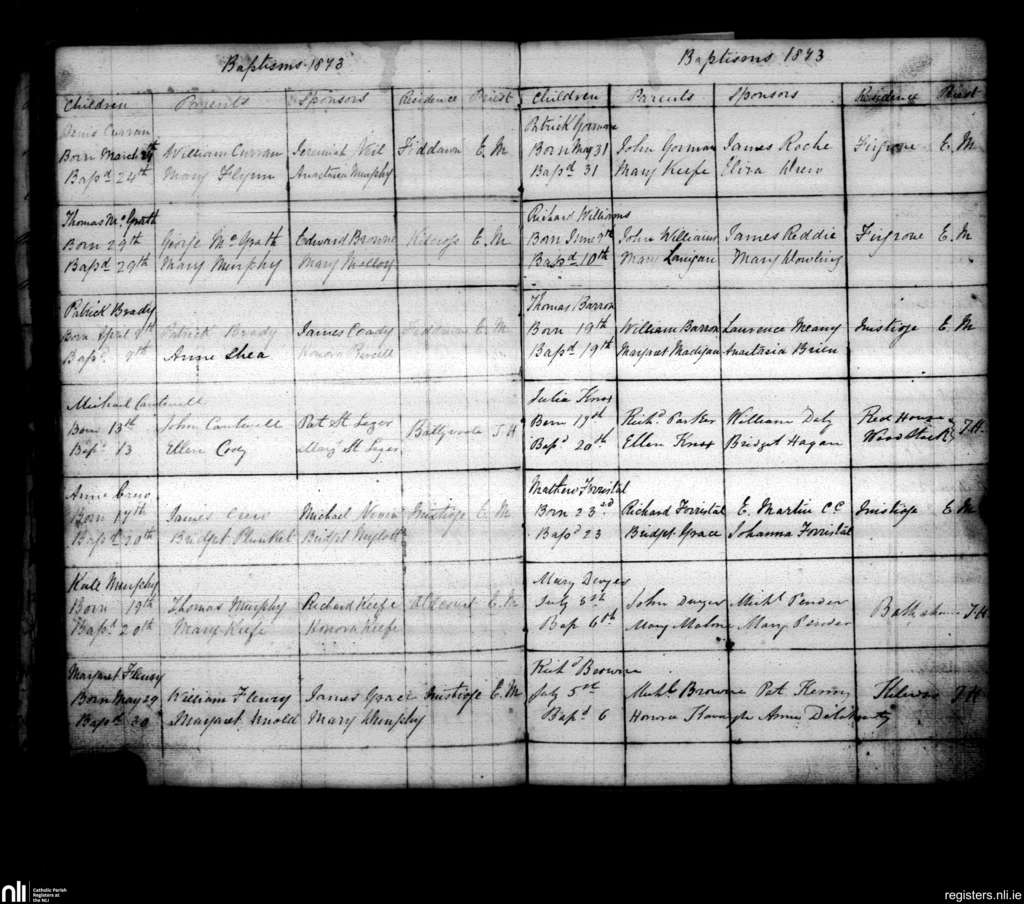 Baptisms 1843
Children Parents Sponsors Residence Priest
Denis Curran
Born March 24th William Curran Jeremiah Neil Fiddawn E. M
Bapd 24th Mary Flynn Anastasia Murphy
Thomas McGrath
Born 29th George McGrath Edward Browne Kilcross E. M
Bapd 29th Mary Murphy Mary Mallory
Patrick Brady
Born April 9th Patrick Brady James Coady Fiddawn E. M
Bapd 9th Anne Shea Honora
Michael Cantwell
Born 13th John Cantwell Pat St Leger J. H
Bapd 13 Ellen Cody Mary St Leger
Anne Crew
Born 17th James Crew Michael Inistioge E. M
Bapd 20th Bridget Plunket Bridget
Kate Murphy
Born 19th Thomas Murphy Richard Keefe E. M
Bapd 20th Mary Keefe Honora Keefe
Margaret Fleury
Born May 29 William Fleury James Grace Inistioge E. M
Bapd 30 Margaret Arnold Mary Murphy
Baptisms 1843
Children Parents Sponsors Residence Priest
Patrick Gorman
Born May 31 John Gorman James Roche Firgrove E. M
Bapd 31 Mary Keefe Eliza Drew
Richard Williams
Born June 9th John Williams James Reddie Firgrove E. M
Bapd 10th Mary Lanigan Mary Dowling
Thomas Barron
Born 19th William Barron Laurence Meany Inistioge E. M
Bapd 19th Margaret Madigan Anastasia Brien
Julia Knox
Born 19th Richd Parker William Daly Red House J. H.
Bapd 20th Ellen Knox Bridget Hagan Woodstock
Mathew Forristal
Born 23rd Richard Forristal E. Martin C C Inistioge E. M
Bapd 23 Bridget Grace Johanna Forristal
Mary Dwyer
July 5st John Dwyer Michl Pender J. H
Bap 6th Mary Malone Mary Pender
Richd Browne
July 5st Michl Browne Pat J. H
Bapd 6 Honora Kavagh Anne
nli Catholic Parish
Registers at
the NLI
registers.nli.ie